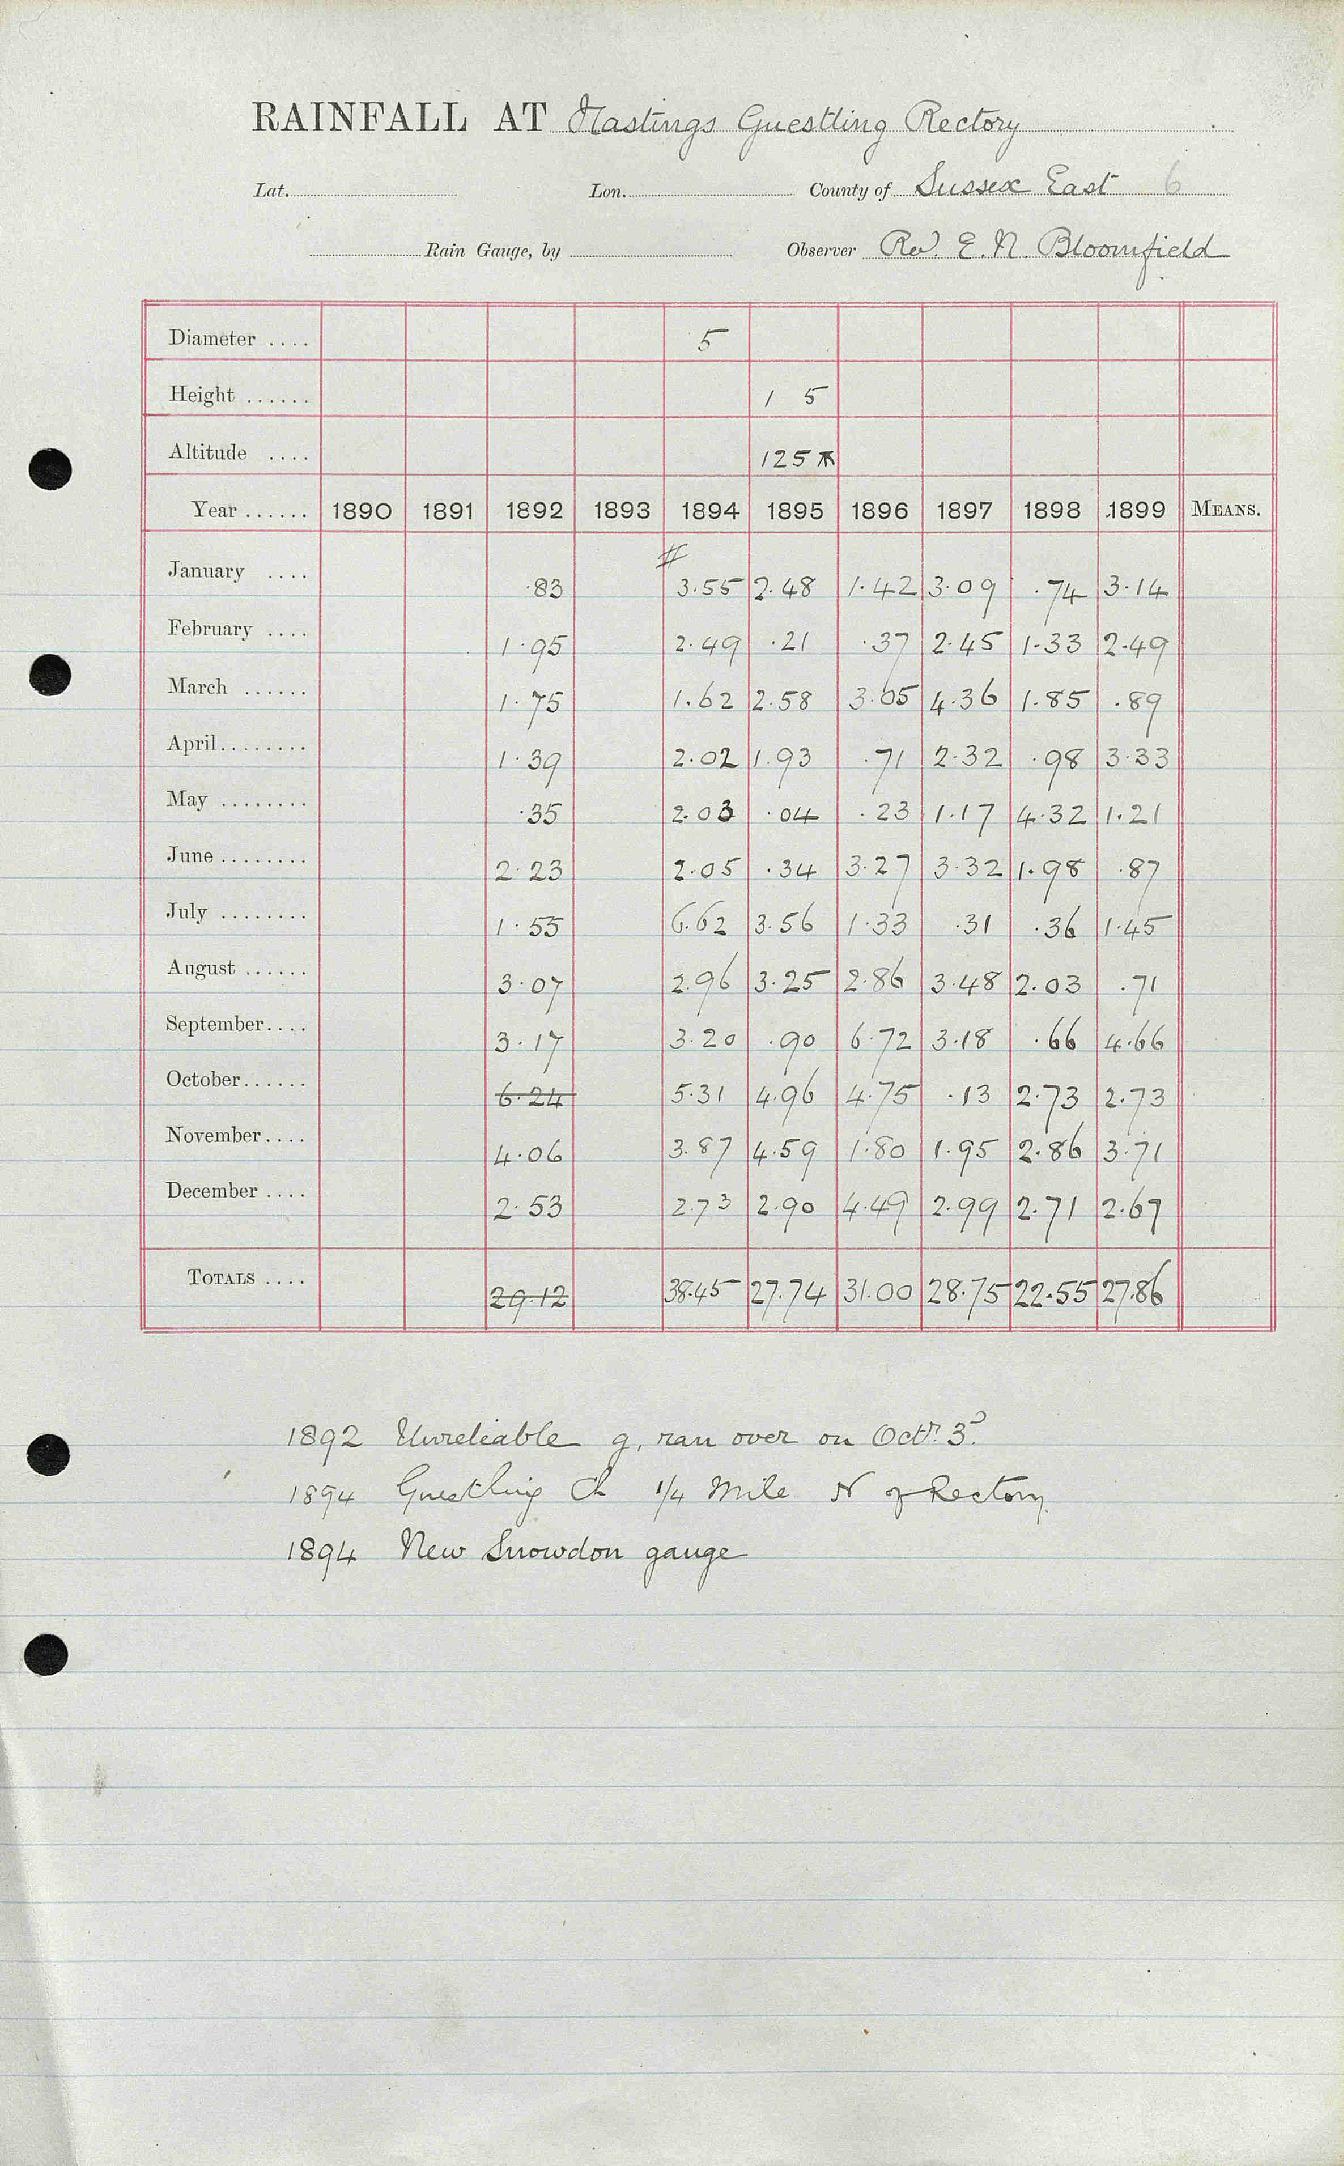 RAINFALL AT Hastings Guestling Rectory
Lat. Lon. County of Sussex East 6
Rain Gauge, by Observer Revd. E. N. Bloomfield
Diameter .... 5
Height ...... 1 5
Altitude .... 125
Year ...... 1890 1891 1892 1893 1894 1895 1896 1897 1898 1899 MEANS.
#
January .... .83 3.55 2.48 1.42 3.09 .74 3.14
February .... 1.95 2.49 .21 .37 2.45 1.33 2.49
March ...... 1.75 1.62 2.58 3.05 4.36 1.85 .89
April........ 1.39 2.02 1.93 .71 2.32 .98 3.33
May ........ .35 2.03 .04 .23 1.17 4.32 1.21
June ........ 2.23 2.05 .34 3.27 3.32 1.98 .87
July ........ 1.55 6.62 3.56 1.33 .31 .36 1.45
August ...... 3.07 2.96 3.25 2.86 3.48 2.03 .71
September.... 3.17 3.20 .90 6.72 3.18 .66 4.66
October...... 6.24 5.31 4.96 4.75 .13 2.73 2.73
November.... 4.06 3.87 4.59 1.80 1.95 2.86 3.71
December .... 2.53 2.73 2.90 4.49 2.99 2.71 2.67
TOTALS .... 29.12 38.45 27.74 31.00 28.75 22.55 27.86
1892 Unreliable g, ran over on Octr. 3?
1894 Guestling Ch 1/4 Mile N of Rectory.
1894 New Snowdon gauge